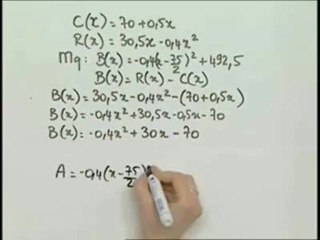 C(x) = 70 + 0,5x
R(x) = 30,5x - 0,4x²
Mq: B(x) = -0,4(x - 75/2)² + 492,5
B(x) = R(x) - C(x)
B(x) = 30,5x - 0,4x² - (70 + 0,5x)
B(x) = -0,4x² + 30,5x - 0,5x - 70
B(x) = -0,4x² + 30x - 70
A = -0,4(x - 75/2)